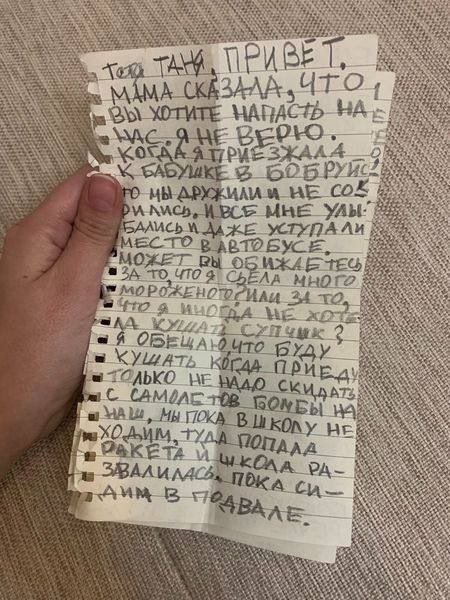 Тётя ТАНЯ, ПРИВЕТ.
МАМА СКАЗАЛА, ЧТО
ВЫ ХОТИТЕ НАПАСТЬ НА
НАС. Я НЕ ВЕРЮ.
КОГДА Я ПРИЕЗЖАЛА
К БАБУШКЕ В БОБРУЙС
ТО МЫ ДРУЖИЛИ И НЕ СО
РИЛИСЬ. И ВСЕ МНЕ УЛЫ-
БАЛИСЬ И ДАЖЕ УСТУПАЛИ
МЕСТО В АВТОБУСЕ.
МОЖЕТ ВЫ ОБИЖАЕТЕСЬ
ЗА ТО, ЧТО Я СЬЕЛА МНОГО
МОРОЖЕНОГО? ИЛИ ЗА ТО,
ЧТО Я ИНОГДА НЕ ХОТЕ
ЛА КУШАТЬ СУПЧИК?
Я ОБЕЩАЮ, ЧТО БУДУ
КУШАТЬ КОГДА ПРИЕДУ
ТОЛЬКО НЕ НАДО СКИДАТЬ
С САМОЛЕТОВ БОМБЫ НА
НАШ, МЫ ПОКА В ШКОЛУ НЕ
ХОДИМ, ТУДА ПОПАЛА
РАКЕТА И ШКОЛА РА-
ЗВАЛИЛАСЬ. ПОКА СИ-
ДИМ В ПОДВАЛЕ.